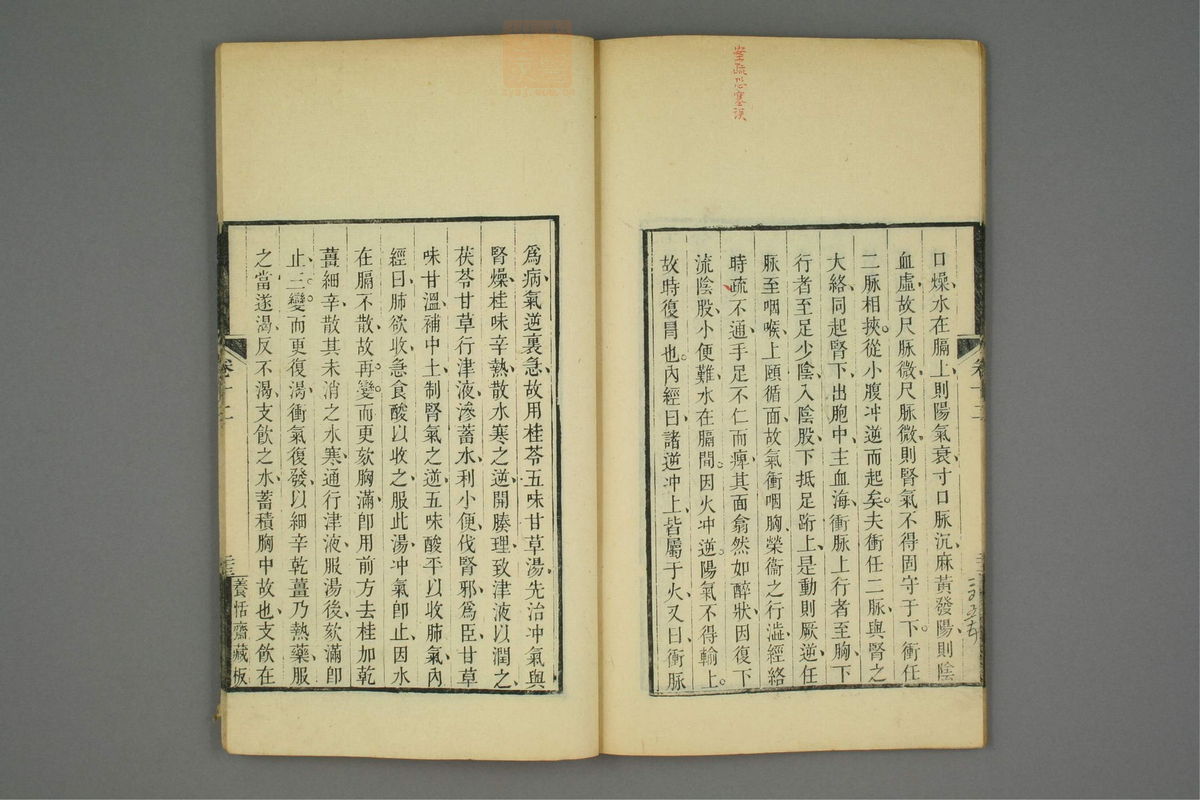 塞疏恐塞誤
口燥水在膈上則陽氣衰寸口脉沉麻黃發陽則陰
血虛故尺脉微尺脉微則腎氣不得固守于下衝任
二脉相挾從小腹冲逆而起矣夫衝任二脉與腎之
大絡同起腎下出胞中主血海衝脉上行者至胸下
行者至足少陰入陰股下抵足跗上是動則厥逆任
脉至咽喉上頤循面故氣衝咽胸榮衞之行澁經絡
時疏不通手足不仁而痺其面翕然如醉狀因復下
流陰股小便難水在膈間因火冲逆陽氣不得輸上
故時復冐也內經曰諸逆冲上皆屬于火又曰衝脉
卷十二
爲病氣逆裏急故用桂苓五味甘草湯先治冲氣與
腎燥桂味辛熱散水寒之逆開腠理致津液以潤之
茯苓甘草行津液滲蓄水利小便伐腎邪爲臣甘草
味甘溫補中土制腎氣之逆五味酸平以收肺氣內
經曰肺欲收急食酸以收之服此湯冲氣卽止因水
在膈不散故再變而更欬胸滿卽用前方去桂加乾
薑細辛散其未消之水寒通行津液服湯後欬滿卽
止三變而更復渴衝氣復發以細辛乾薑乃熱藥服
之當遂渴反不渴支飲之水蓄積胸中故也支飲在
卷十二
養恬齋藏板